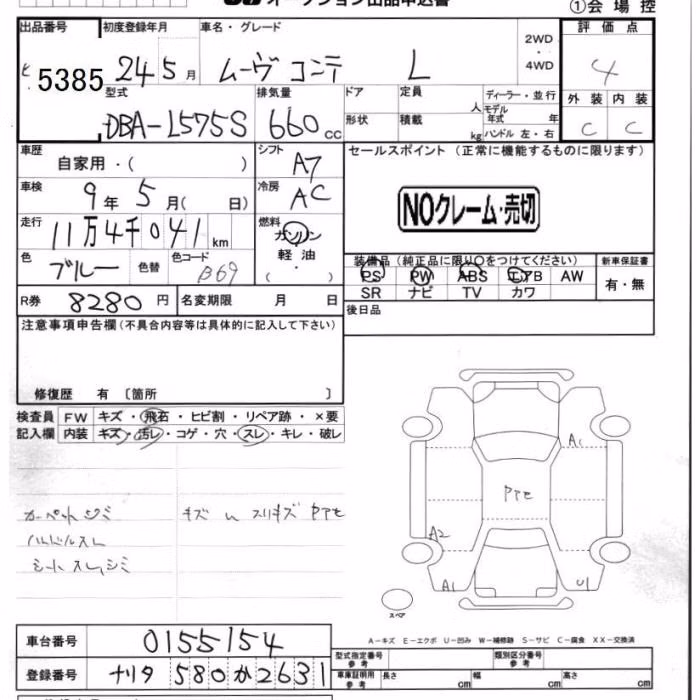 オークション出品申込書
①会場控
出品番号 初度登録年月 車名・グレード 2WD・4WD 評価点
5385 24 5月 ムーヴ コンテ L 4
型式 排気量 ドア 定員 人 ディーラー・並行
モデル年式 年
外装 内装
DBA-L575S 660cc 形状 積載 kg ハンドル 左・右 C C
車歴 自家用・( ) シフト A7
セールスポイント (正常に機能するものに限ります)
車検 9年 5月( 日) 冷房 AC
NOクレーム・売切
走行 11万4千041km 燃料 ガソリン・軽油・( )
色 ブルー 色替 色コード B69
装備品(純正品に限り○をつけてください) 新車保証書
PS PW ABS エアB AW 有・無
SR ナビ TV カワ
R券 8280円 名変期限 月 日
後日品
注意事項申告欄(不具合内容等は具体的に記入して下さい)
修復歴 有 〔箇所 〕
検査員記入欄
FW キズ・飛石・ヒビ割・リペア跡・×要
内装 キズ・汚レ・コゲ・穴・スレ・キレ・破レ
カーペットシミ キズ
ハンドルスレ
シートスレ,シミ
A1
A2
A1
U1
スペア
A-キズ E-エクボ U-凹み W-補修跡 S-サビ C-腐食 XX-交換済
車台番号 0155154
型式指定番号 参考 類別区分番号 参考
登録番号 ナリタ 580 か 2631
車庫証明用 参考 長さ cm 幅 cm 高さ cm